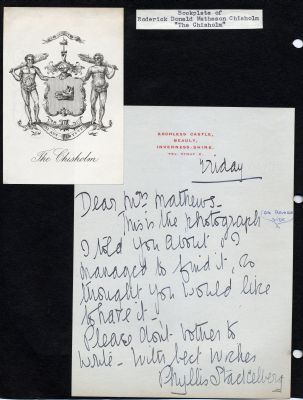 Bookplate of
Roderick Donald Matheson Chisholm
"The Chisholm"
The Chisholm
ERCHLESS CASTLE,
BEAULY,
INVERNESS-SHIRE.
Friday
Dear Mrs Mathews-
This is the photograph
I told you about, I
managed to find it, so
thought you would like
to have it-
Please don't bother to
write- With best wishes
Phyllis Stackelberg